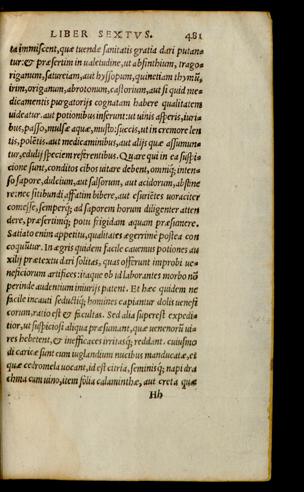 LIBER SEXTVS. 481
ta immiscent, quæ tuendæ sanitatis gratia dari putan=
tur: & præsertim in ualetudine, ut absinthium, trago=
riganum, satureiam, aut hyssopum, quinetiam thymũ,
irim, origanum, abrotonum, castorium, aut si quid me=
dicamentis purgatorijs cognatam habere qualitatem
uideatur. aut potionibus inserunt: ut uinis asperis, iuri=
bus, passo, mulsæ aquæ, musto: succis, ut in cremore len
tis, polẽtis. aut medicaminibus, aut alijs quæ assumun=
tur, edulij speciem referentibus. Quare qui in ea suspi=
cione sunt, conditos cibos uitare debent, omniq; inten=
so sapore, dulcium, aut salsorum, aut acidorum, abstine
re: nec sitibundi affatim bibere, aut esuriẽtes uoraciter
comesse, semperq; ad saporem horum diligenter atten
dere, præsertimq; potu frigidam aquam præsumere.
Satiato enim appetitu, qualitates ægerrime postea con
coquũtur. In ægris quidem facile cauemus potiones au
xilij prætextu dari solitas, quas offerunt improbi ue=
neficiorum artifices: itaque ob id laborantes morbo nõ
perinde audenium iniurijs patent. Et hæc quidem ne
facile incauti seductiq; homines capiantur dolis uenefi
corum, ratio est & facultas. Sed alia superest expedi=
tior, ut suspiciosi aliqua præsumant, quæ uenenorũ ui=
res hebetent, & inefficaces irritasq; reddant. cuiusmo
di caricæ sunt cum iuglandium nucibus manducatæ, et
quæ cedromela uocant, id est citria, seminisq; napi dra
chma cum uino, item folia calaminthæ, aut creta quæ
Hh